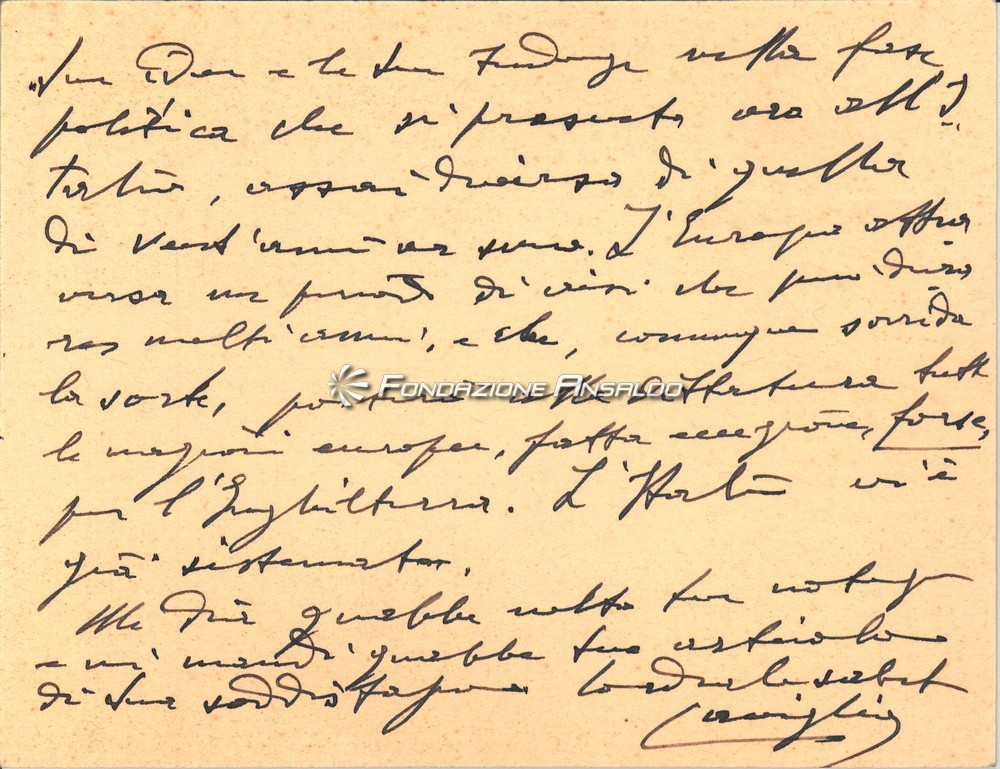 sue idee e le sue tendenze nella fase
politica che si presenta ora all'I-
talia, assai diversa di quella
di vent'anni or sono. L'Europa attra
versa un periodo di crisi che può dura
re molti anni, e che, comunque sorrida
la sorte, porterà alla dittatura tutte
le nazioni europee, fatta eccezione, forse,
per l'Inghilterra. L'Italia vi è
già sistemata.
Mi dia qualche volta sue notizie
e mi mandi qualche suo articolo
di sua soddisfazione. Cordiali saluti
Caviglia
FONDAZIONE ANSALDO